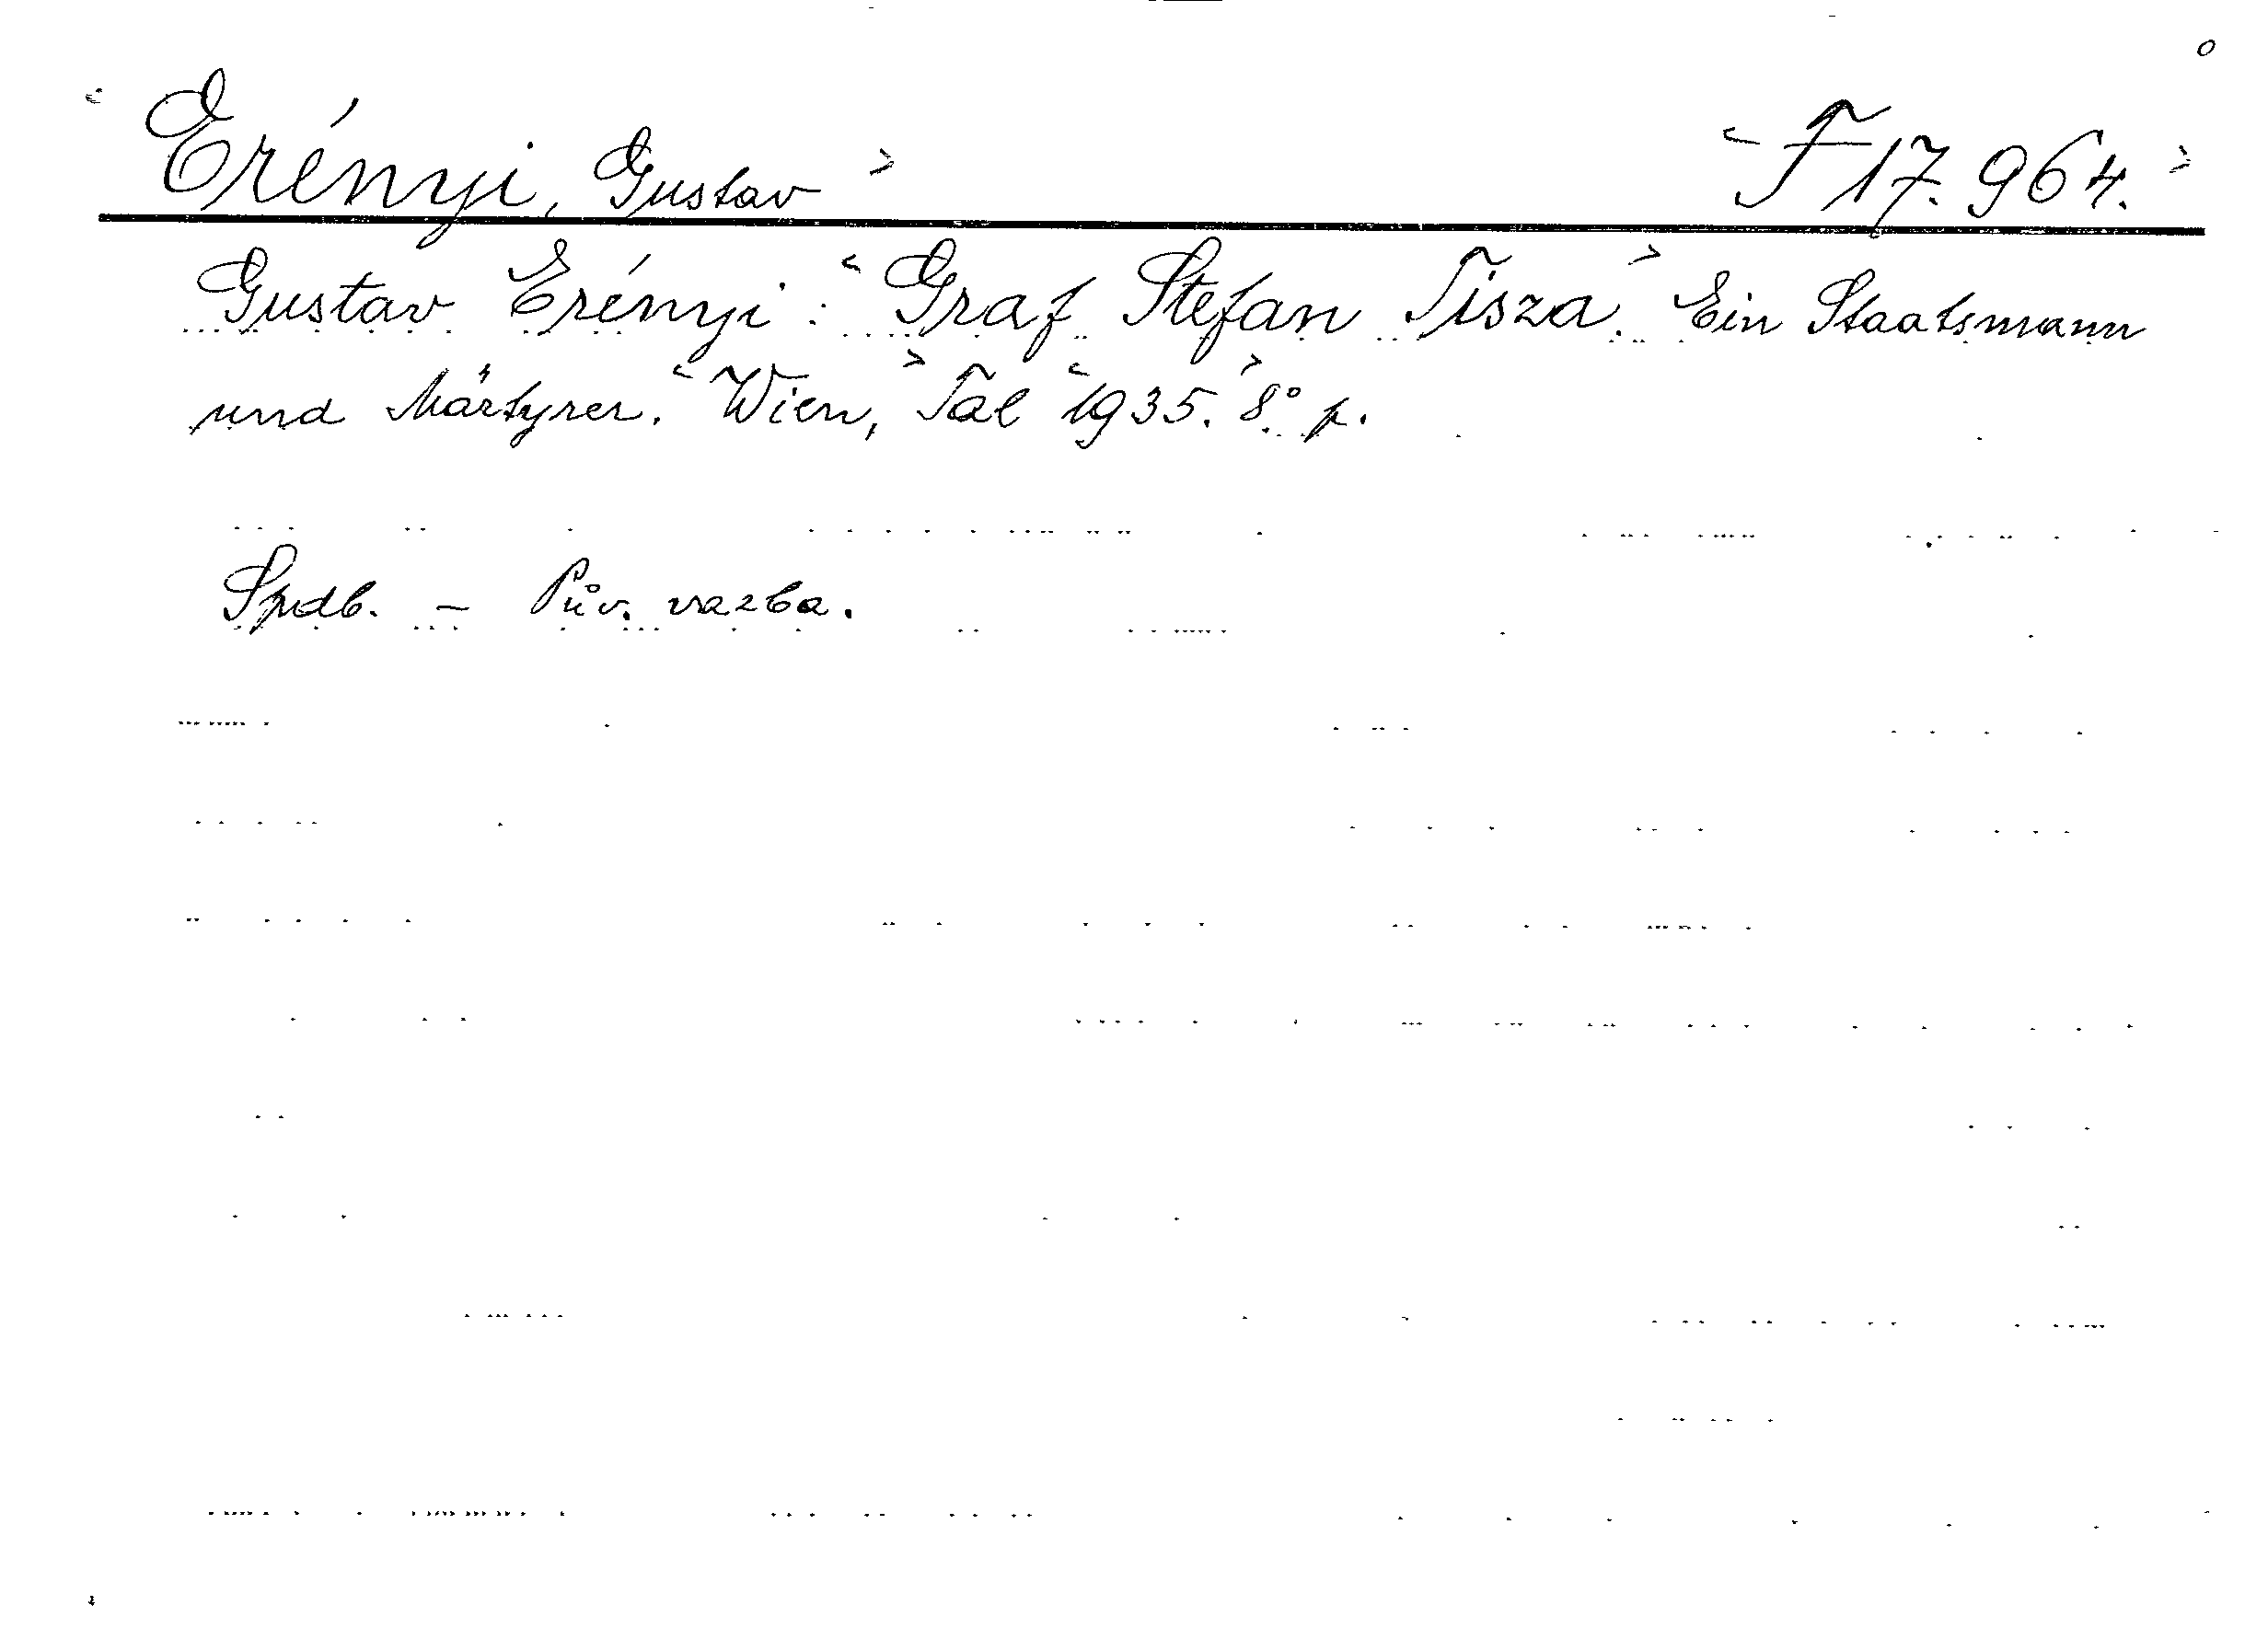 <Erényi, Gustav> <F 17.964.>
Gustav Erényi: <Graf Stefan Tisza.> Ein Staatsmann
und Märtyrer. <Wien,> Tal <1935.> 8° p.
Spdb. - Pův. vazba.